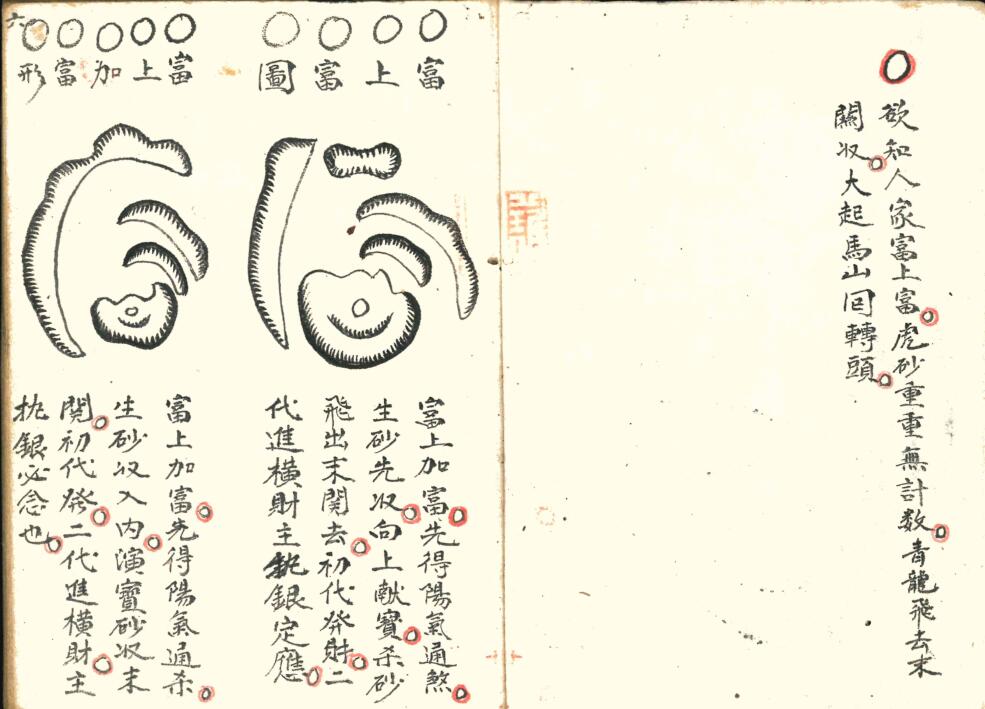 欲知人家富上富虎砂重重無計数青龍飛去末
關收大起馬山囘轉頭
富上富圖
富上加富先得陽氣通煞
生砂先收向上献寳杀砂
飛出末関去初代発財二
代進横財主銀定應
富上加富形
富上加富先得陽氣通杀
生砂收入内演寳砂收末
関初代発二代進横財主
銀必念也
六